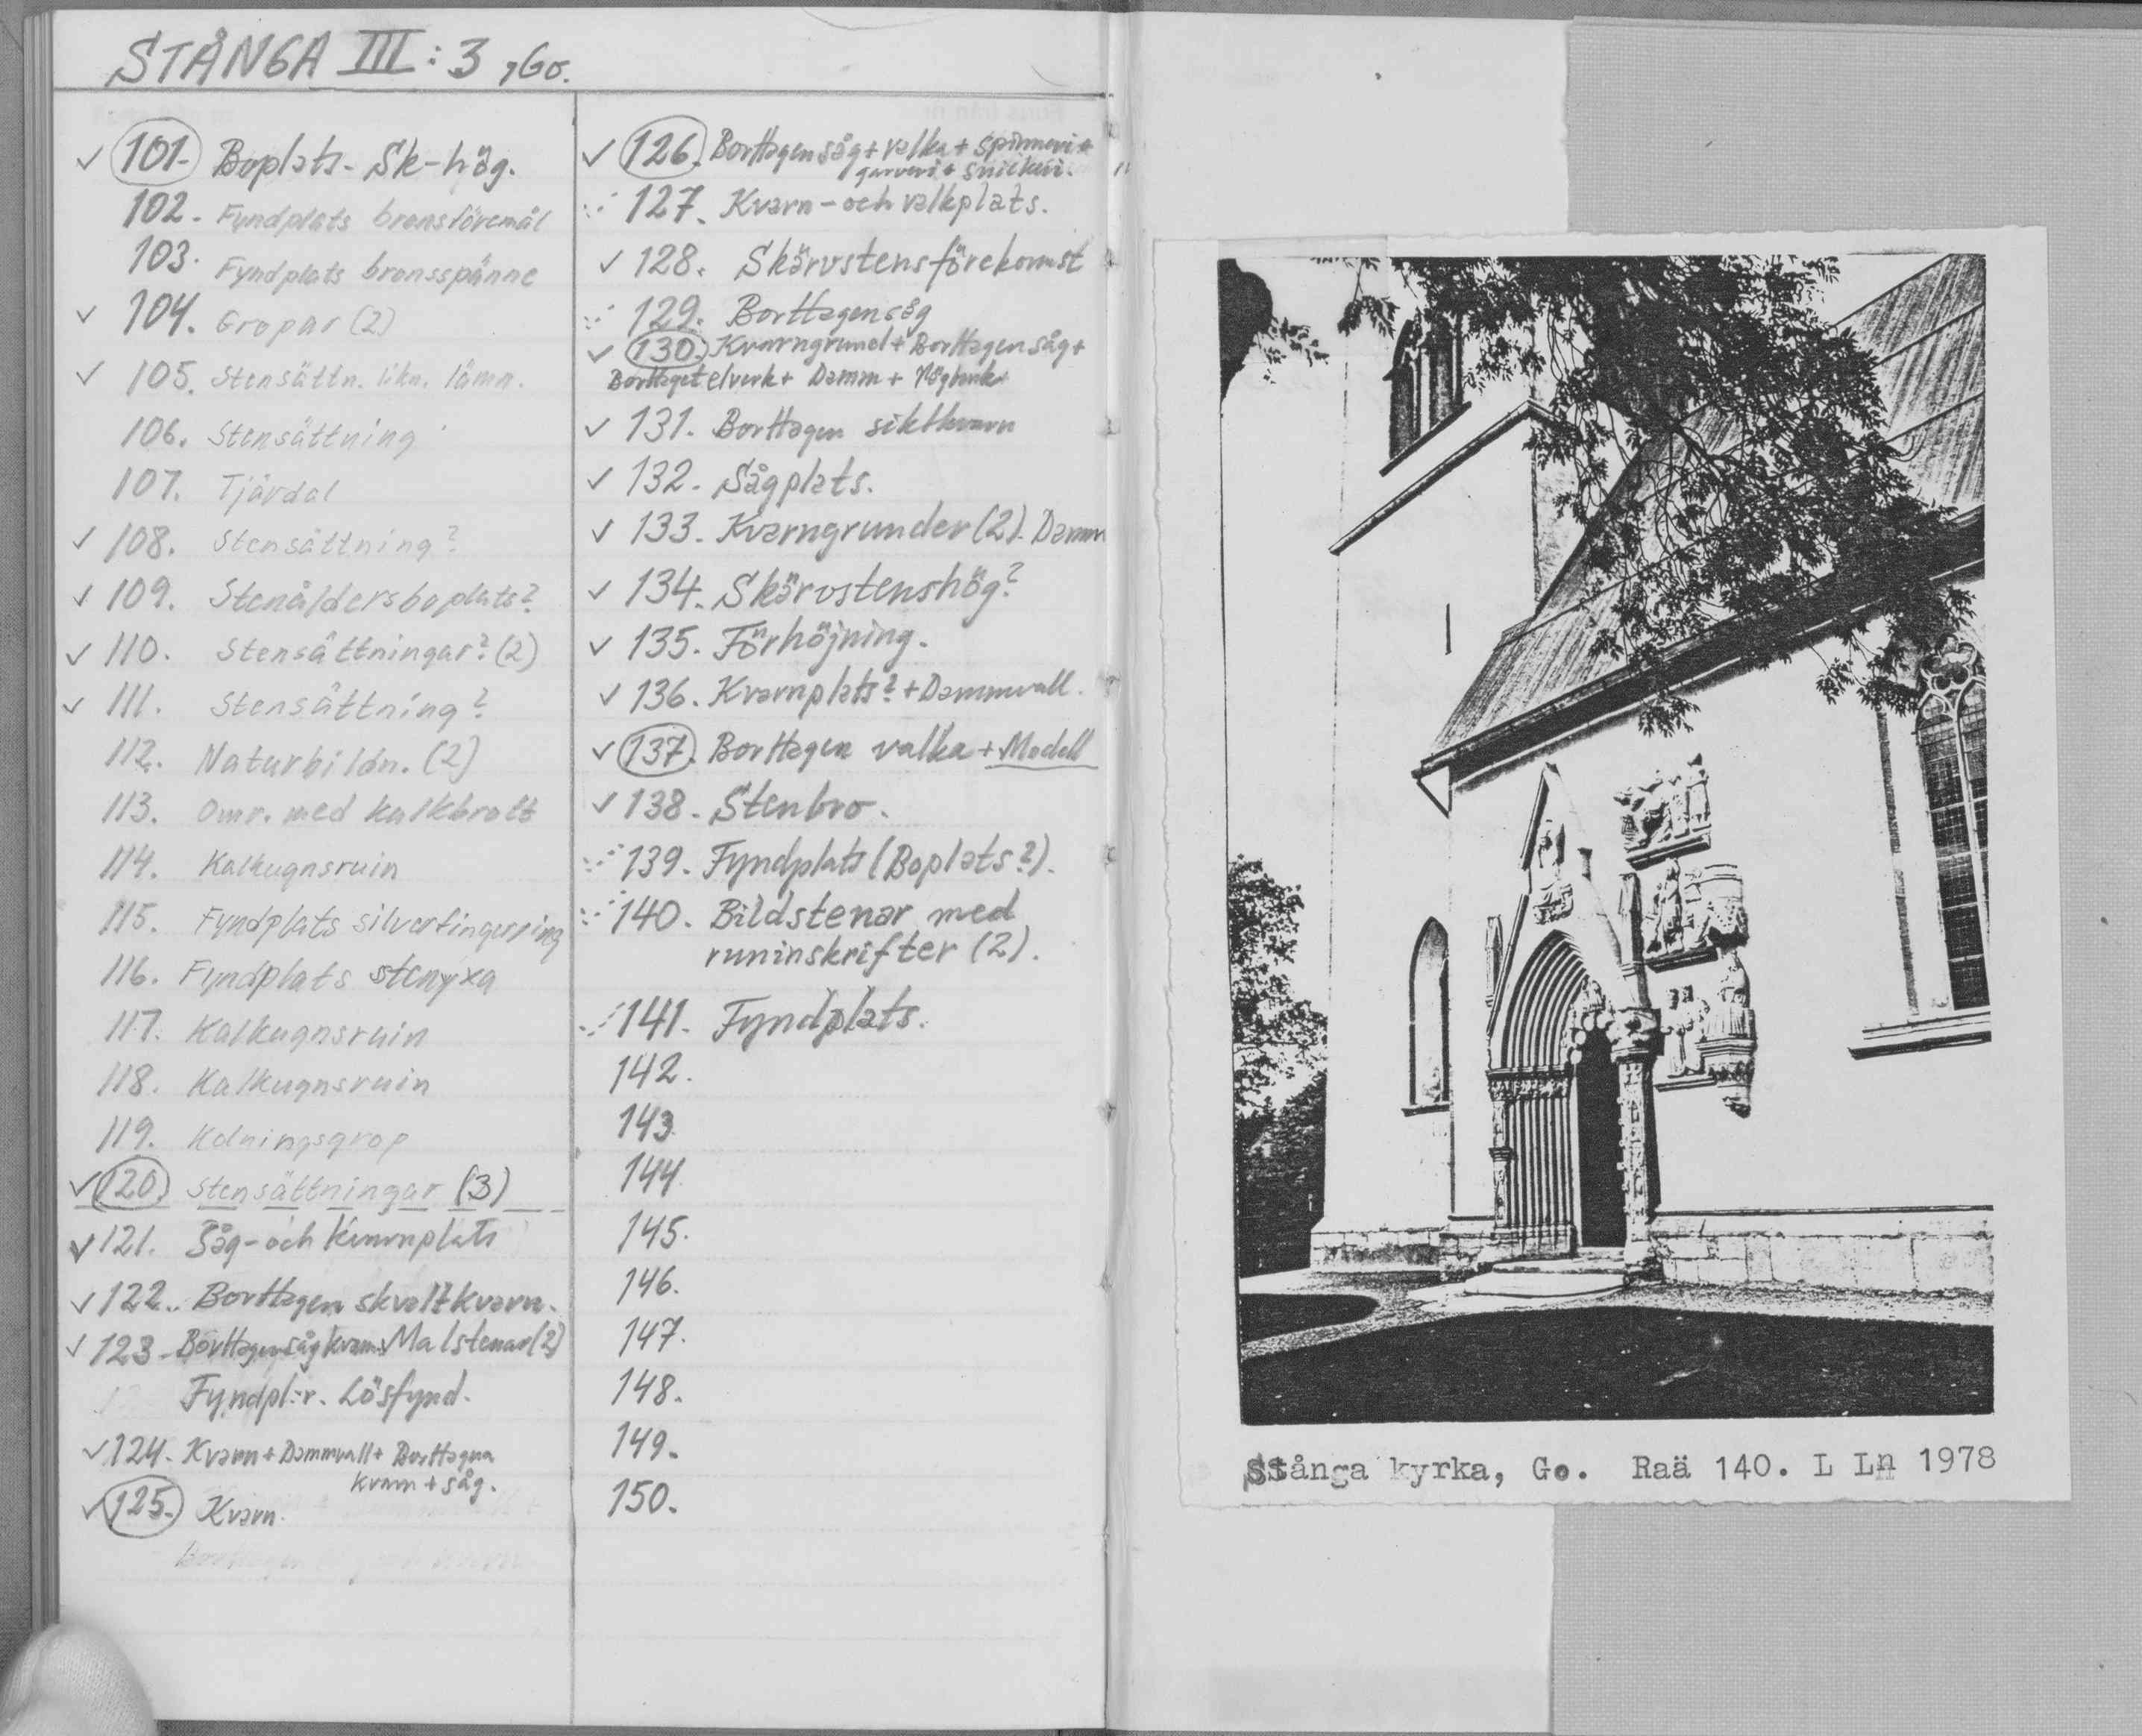 STÅNGA III:3, Go.
101. Boplats - Sk-hög.
102. Fyndplats bronsföremål
103. Fyndplats bronsspänne
104. Gropar (2)
105. Stensättn. likn. lämn.
106. Stensättning
107. Tjärdal
108. Stensättning?
109. Stenåldersboplats?
110. Stensättningar? (2)
111. Stensättning?
112. Naturbildn. (2)
113. Omr. med kalkbrott
114. Kalkugnsruin
115. Fyndplats silverfingerring
116. Fyndplats stenyxa
117. Kalkugnsruin
118. Kalkugnsruin
119. Kolningsgrop
120. Stensättningar (3)
121. Såg- och kvarnplats
122. Borttagen skvaltkvarn.
123. Borttagen sågkvarn. Malstenar (2)
Fyndpl:r. Lösfynd.
124. Kvarn + Dammvall + Borttagna
kvarn + såg.
125. Kvarn.
126. Borttagen såg + valka + spinneri +
garveri + snickeri.
127. Kvarn- och valkplats.
128. Skärvstensförekomst
129. Borttagen såg
130. Kvarngrund + Borttagen såg +
Borttaget elverk + Damm +
131. Borttagen siktkvarn
132. Sågplats.
133. Kvarngrunder (2). Damm
134. Skärvstenshög?
135. Förhöjning.
136. Kvarnplats? + Dammvall.
137. Borttagen valka + Modell
138. Stenbro.
139. Fyndplats (Boplats?).
140. Bildstenar med
runinskrifter (2).
141. Fyndplats.
142.
143.
144.
145.
146.
147.
148.
149.
150.
Stånga kyrka, Go. Raä 140. L Ln 1978